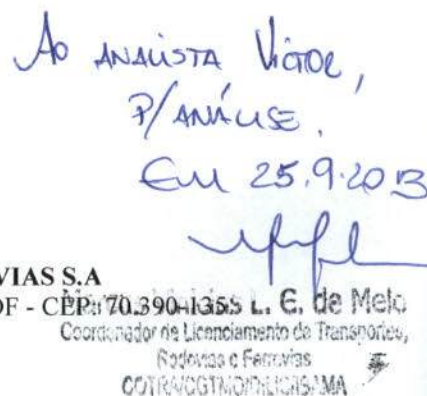 Ao ANALISTA VICTOR,
P/ANÁLISE.
EM 25.9.2013
VIAS S.A
DF - CEP: 70.390-135
L. E. de Melo
Coordenador de Licenciamento de Transportes,
Rodovias e Ferrovias